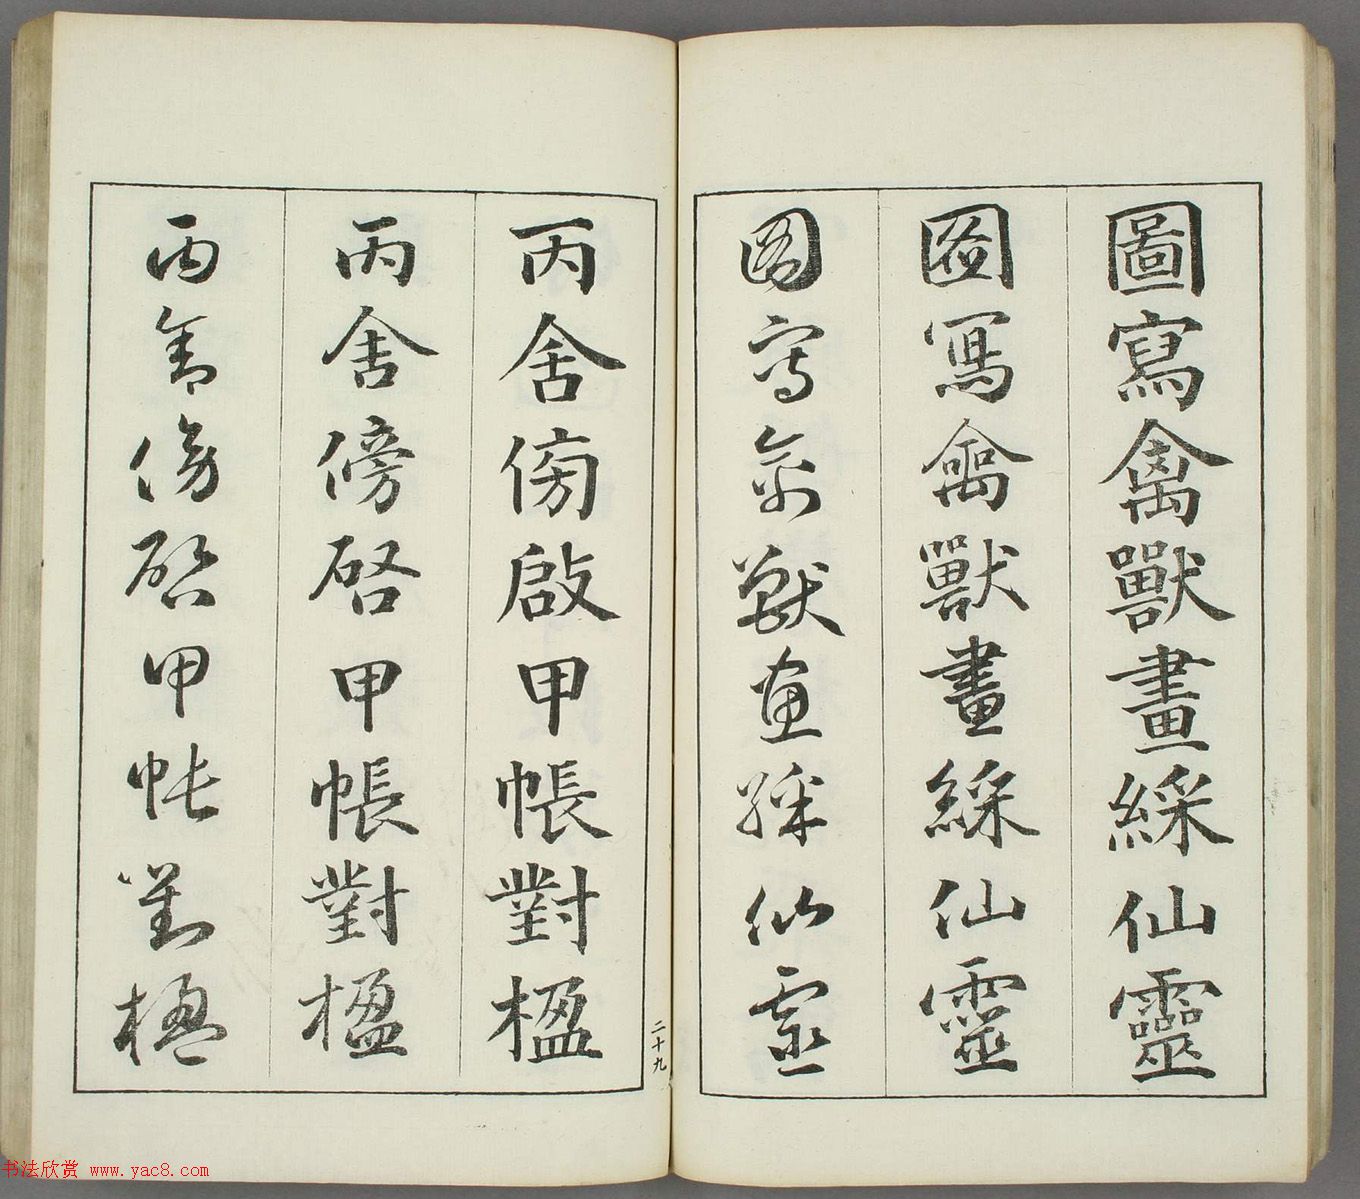 圖寫禽獸畫綵仙靈
圖寫禽獸畫綵仙靈
圖寫禽獸畫綵仙靈
丙舍傍啟甲帳對楹
丙舍傍启甲帳對楹
丙舍傍启甲帳對楹
二十九
书法欣赏 www.yac8.com